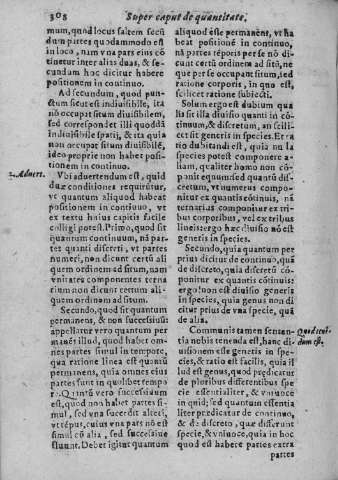 308 Super caput de quantitate.
mum, quod locus saltem secũ
dum partes quodammodo est
in loco, nam vna pars eius cõ
tinetur inter alias duas, & se-
cundum hoc dicitur habere
positionem in continuo.
Ad secundum, quod pun-
ctum sicut est indiuisibile, ita
nõ occupat situm diuisibilem,
sed correspondet illi quoddã
indiuisibile spatij, & ita quia
non occupat situm diuisibilẽ,
ideo proprie non habet posi-
tionem in continuo.
2. Aduert.
Vbi aduertendum est, quid
duæ conditiones requirũtur,
vt quantum aliquod habeat
positionem in continuo, vt
ex textu huius capitis facile
colligi potest. Primo, quod sit
quantum continuum, nã par-
tes quanti discreti, vt partes
numeri, non dicunt certũ ali
quem ordinem ad situm, nam
vnitates componentes terna
rium non dicunt certum ali-
quem ordinem ad situm.
Secundo, quod sit quantum
permanens, & non successiuũ
appellatur vero quantum per
manẽs illud, quod habet om-
nes partes simul in tempore,
qua ratione linea est quantũ
permanens, quia omnes eius
partes sunt in quolibet tempo
re. Quantũ vero successiuum
est, quod non habet partes si-
mul, sed vna succedit alteri,
vt tẽpus, cuius vna pars nõ est
simul cũ alia, sed successiue
fluunt. Debet igitur quantum
aliquod esse permanens, vt ha
beat positionẽ in continuo,
nã partes tẽporis per se nõ di-
cunt certũ ordinem ad sitũ, ne
que per se occupant situm, sed
ratione corporis, in quo est,
scilicet ratione subiecti.
Solum ergo est dubium qua
lis sit illa diuisio quanti in cõ-
tinuum, & discretum, an scili-
cet sit generis in species. Et ra
tio dubitandi est, quia nulla
species potest componere a-
liam, qualiter homo non cõ-
ponit equum sed quantũ dis-
cretum, vt numerus compo-
nitur ex quantis cõtinuis, nã
ternarius componitur ex tri
bus corporibus, vel ex tribus
lineis: ergo hæc diuisio nõ est
generis in species.
Secundo, quia quantum per
prius dicitur de continuo, quã
de discreto, quia discretũ cõ-
ponitur ex quantis cõtinuis:
ergo non est diuisio generis
in species, quia genus non di
citur prius de vna specie, quã
de alia.
Communis tamen senten-
tia nobis tenenda est, hanc di-
uisionem esse generis in spe-
cies, & ratio est facilis, quia il
lud est genus, quod prædicatur
de pluribus differentibus spe
cie essentialiter, & vniuoce
in quid; sed quantum essentia
liter prædicatur de continuo,
& de discreto, quæ differunt
specie, & vniuoce, quia in hoc
quod est habere partes extra
partes